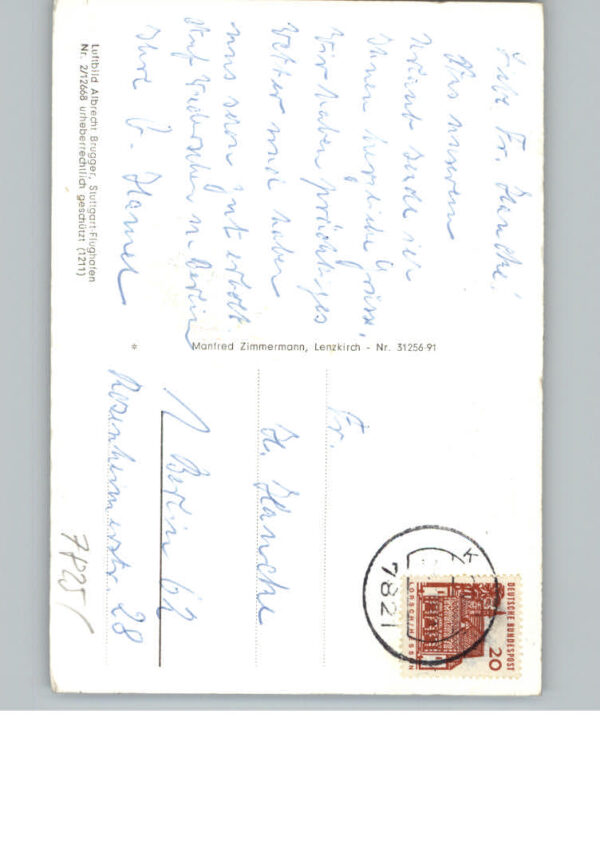 Liebe Fr. Hancke!
Aus unserem
Urlaub sende ich
Ihnen herzliche Grüsse,
Wir haben prächtiges
Wetter und haben
uns schon gut erholt.
Auf Wiedersehen in Berlin
Ihre
Luftbild Albrecht Brugger, Stuttgart-Flughafen
Nr. 2/12668 urheberrechtlich geschützt (1211)
* Manfred Zimmermann, Lenzkirch - Nr. 31256-91
Fr.
H. Hancke
1 Berlin 62
Rosenheimerstr. 28
DEUTSCHE BUNDESPOST
20
LORSCH/HESSEN
7821